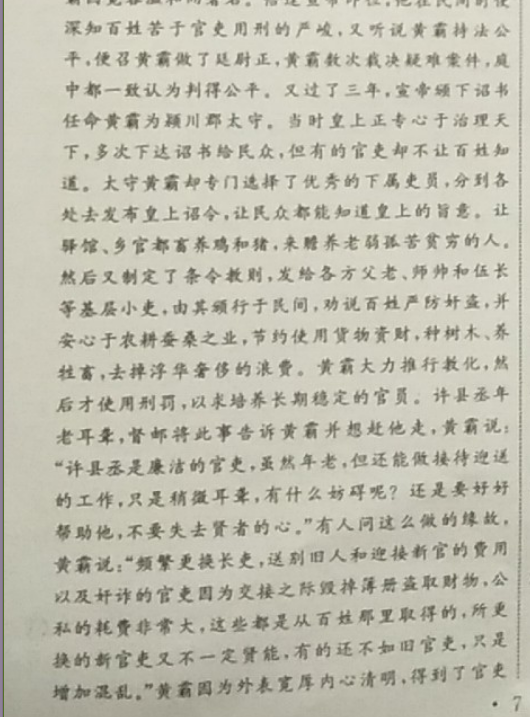 深知百姓苦于官吏用刑的严峻，又听说黄霸持法公
平，便召黄霸做了廷尉正，黄霸数次裁决疑难案件，庭
中都一致认为判得公平。又过了三年，宣帝颁下诏书
任命黄霸为颍川郡太守。当时皇上正专心于治理天
下，多次下达诏书给民众，但有的官吏却不让百姓知
道。太守黄霸却专门选择了优秀的下属吏员，分到各
处去发布皇上诏令，让民众都能知道皇上的旨意。让
驿馆、乡官都畜养鸡和猪，来赡养老弱孤苦贫穷的人。
然后又制定了条令教则，发给各方父老、师帅和伍长
等基层小吏，由其颁行于民间，劝说百姓严防奸盗，并
安心于农耕蚕桑之业，节约使用货物资财，种树木、养
牲畜，去掉浮华奢侈的浪费。黄霸大力推行教化，然
后才使用刑罚，以求培养长期稳定的官员。许县丞年
老耳聋，督邮将此事告诉黄霸并想赶他走，黄霸说：
“许县丞是廉洁的官吏，虽然年老，但还能做接待迎送
的工作，只是稍微耳聋，有什么妨碍呢？还是要好好
帮助他，不要失去贤者的心。”有人问这么做的缘故，
黄霸说：“频繁更换长吏，送别旧人和迎接新官的费用
以及奸诈的官吏因为交接之际毁掉薄册盗取财物，公
私的耗费非常大，这些都是从百姓那里取得的，所更
换的新官吏又不一定贤能，有的还不如旧官吏，只是
增加混乱。”黄霸因为外表宽厚内心清明，得到了官吏
·7